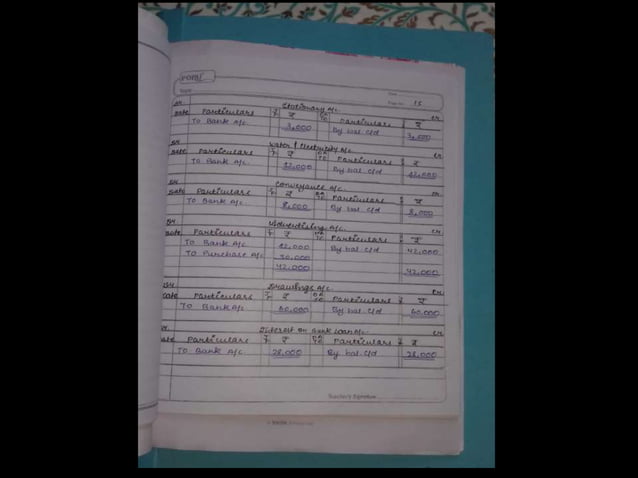 romy
Date
Page No. 15
Stationary A/c.
Dr. Cr.
Date Particulars J/F ₹ Date Particulars J/F ₹
To Bank A/c. 3,000 By bal c/d 3,000
Water & Electricity A/c.
Dr. Cr.
Date Particulars J/F ₹ Date Particulars J/F ₹
To Bank A/c. 12,000 By bal c/d 12,000
Conveyance A/c.
Dr. Cr.
Date Particulars J/F ₹ Date Particulars J/F ₹
To Bank A/c. 8,000 By bal c/d 8,000
Advertising A/c.
Dr. Cr.
Date Particulars ₹ Particulars ₹
To Bank A/c 12,000 By bal c/d 42,000
To Purchase A/c 30,000
42,000 42,000
Drawings A/c.
Dr. Cr.
Date Particulars ₹ Particulars ₹
To Bank A/c 60,000 By bal c/d 60,000
Interest on Bank loan A/c.
Dr. Cr.
Date Particulars ₹ Particulars ₹
To Bank A/c 28,000 By bal c/d 28,000
Teacher's Signature